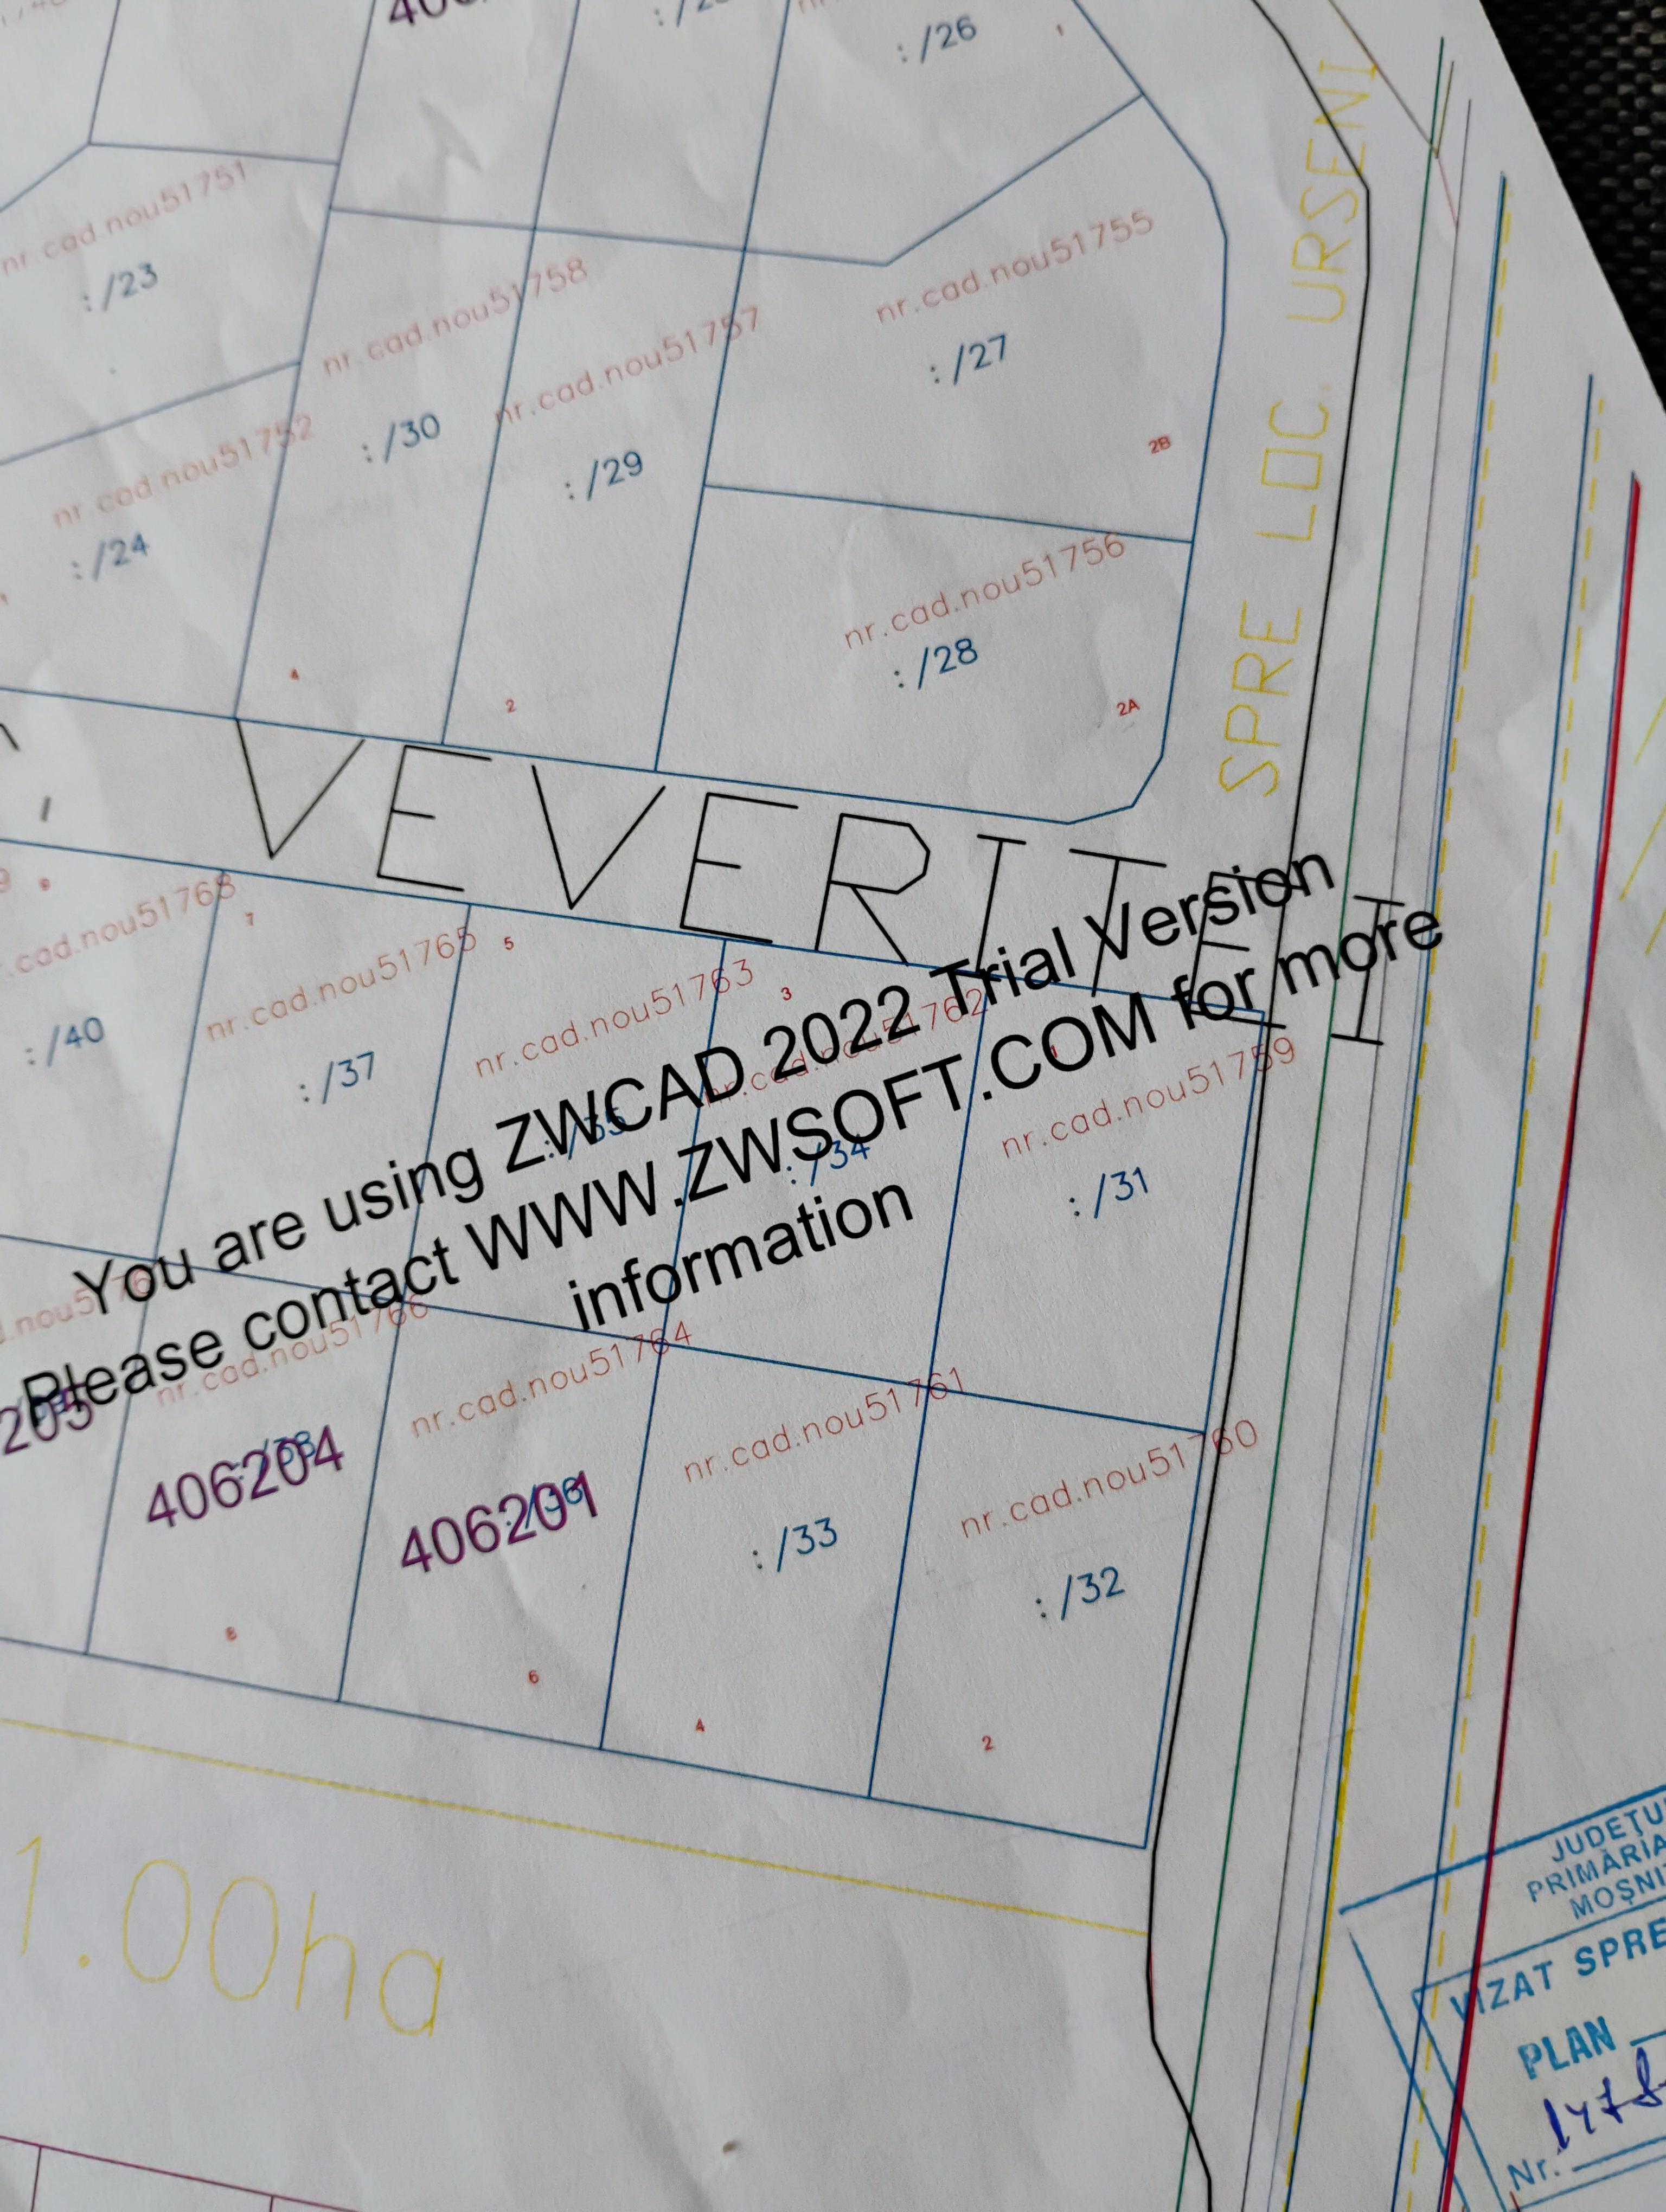 : /26
1
nr.cad.nou51751
: /23
nr.cad.nou51758
: /30
nr.cad.nou51757
: /29
nr.cad.nou51755
: /27
2B
nr.cad.nou51752
: /24
nr.cad.nou51756
: /28
2A
4
2
SPRE LOC. URSENI
VEVERITEI
nr.cad.nou51765
7
: /40
: /37
5
nr.cad.nou51763
: /35
3
nr.cad.nou51762
: /34
nr.cad.nou51759
: /31
You are using ZWCAD 2022 Trial Version
Please contact WWW.ZWSOFT.COM for more
information
nr.cad.nou51766
: /38
406204
8
nr.cad.nou51764
: /36
406201
6
nr.cad.nou51761
: /33
4
nr.cad.nou51760
: /32
2
1.00ha
PRIMĂRIA
VIZAT SPRE
PLAN
Nr.